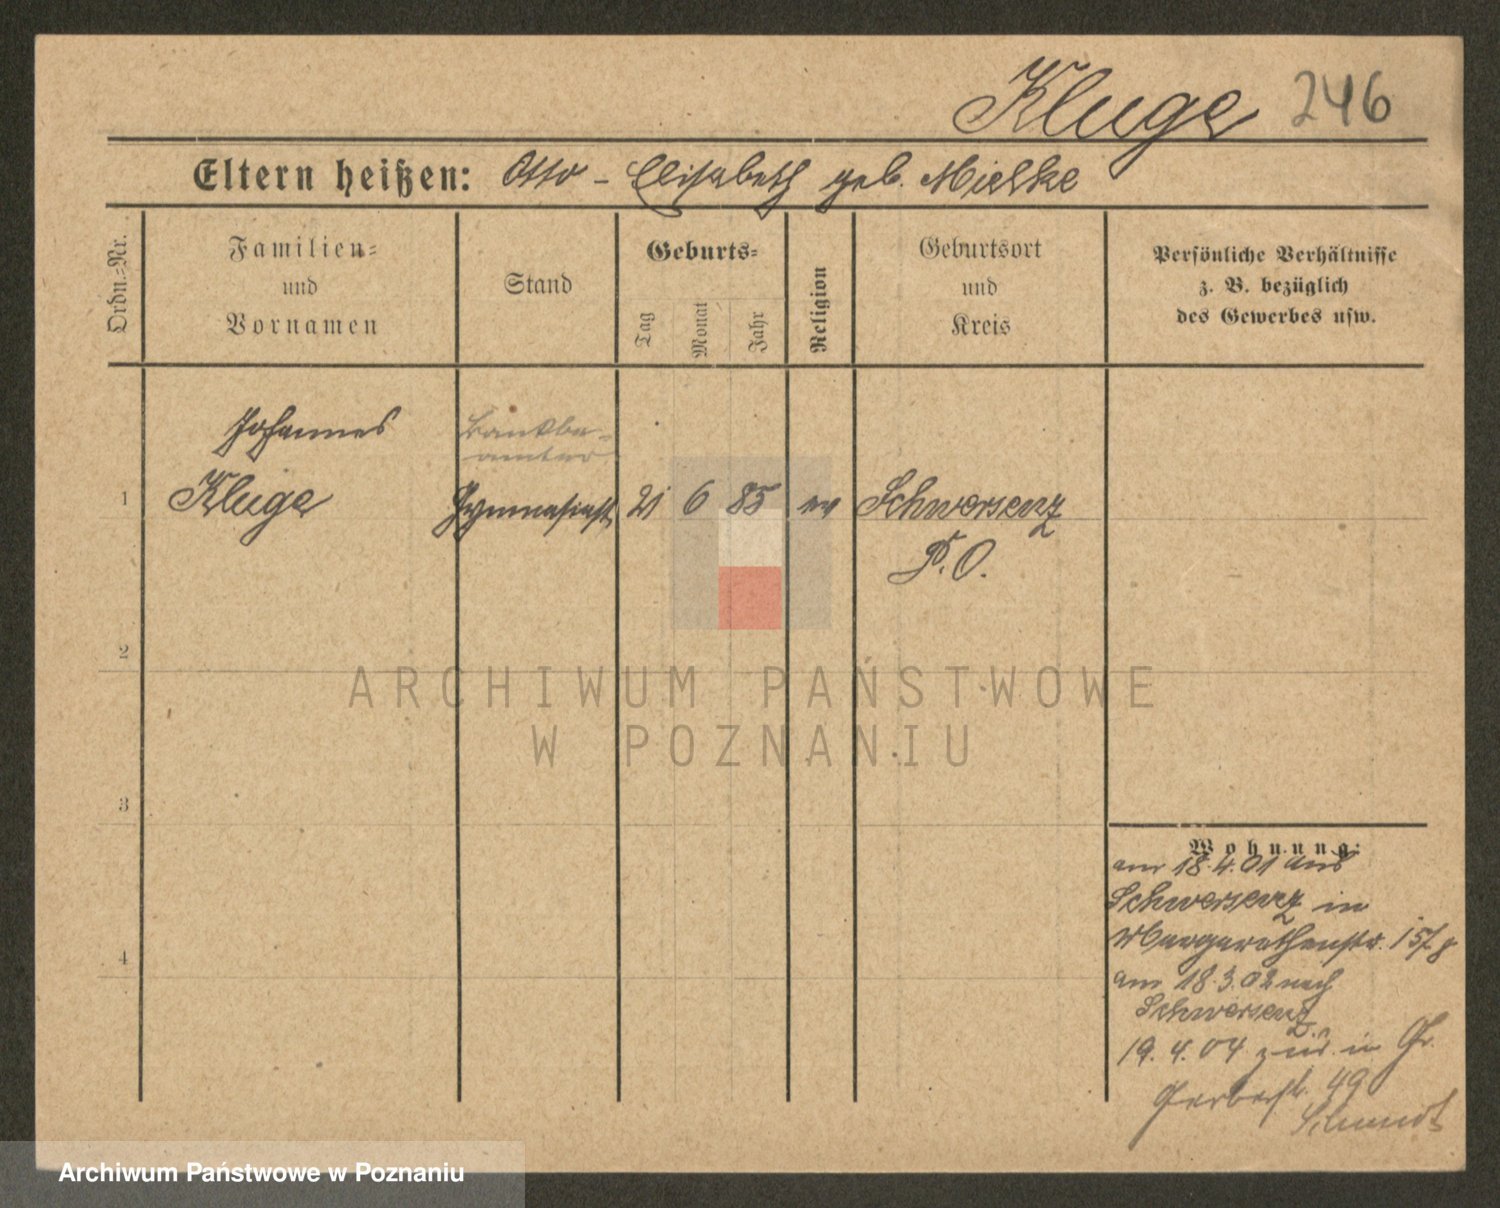 Kluge 246
Eltern heißen: Otto - Elisabeth geb. Mielke
Ordn.=Nr.
Familien=
und
Vornamen
Stand
Geburts=
Tag
Monat
Jahr
Religion
Geburtsort
und
Kreis
Persönliche Verhältnisse
z. B. bezüglich
des Gewerbes usw.
Johannes
Kluge
Bankbe-
amter
1
Gymnasiast
21 6 85 ev
Schwersenz
P. O.
2
3
4
Wohnung:
am 18.4.01 aus
Schwersenz in
Margarethenstr.
am 18.3.02 nach
Schwersenz
19. 4. 04 zur. in Gr.
Gerberstr. 49
Schmidt
ARCHIWUM PAŃSTWOWE
W POZNANIU
Archiwum Państwowe w Poznaniu